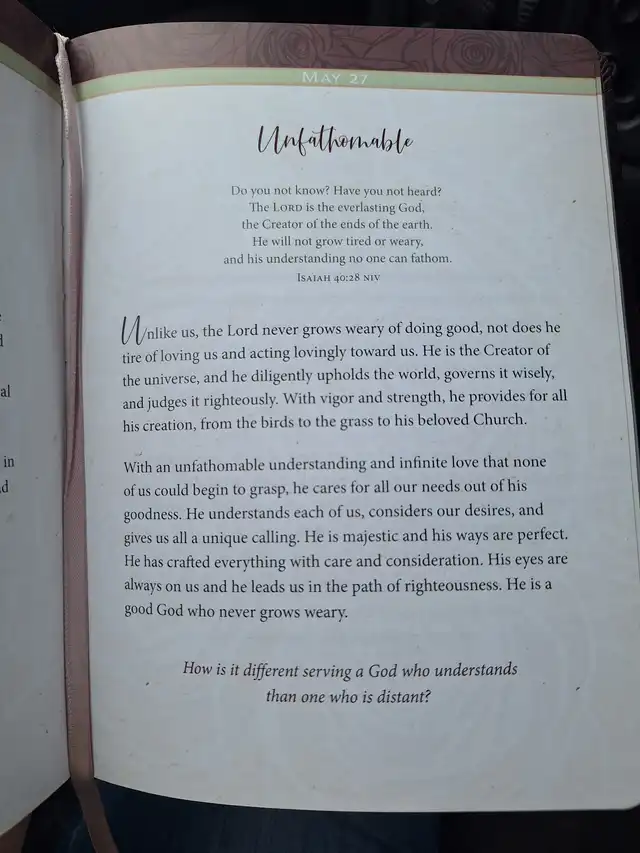 MAY 27
Unfathomable
Do you not know? Have you not heard?
The LORD is the everlasting God,
the Creator of the ends of the earth.
He will not grow tired or weary,
and his understanding no one can fathom.
ISAIAH 40:28 NIV
Unlike us, the Lord never grows weary of doing good, not does he
tire of loving us and acting lovingly toward us. He is the Creator of
the universe, and he diligently upholds the world, governs it wisely,
and judges it righteously. With vigor and strength, he provides for all
his creation, from the birds to the grass to his beloved Church.
With an unfathomable understanding and infinite love that none
of us could begin to grasp, he cares for all our needs out of his
goodness. He understands each of us, considers our desires, and
gives us all a unique calling. He is majestic and his ways are perfect.
He has crafted everything with care and consideration. His eyes are
always on us and he leads us in the path of righteousness. He is a
good God who never grows weary.
How is it different serving a God who understands
than one who is distant?